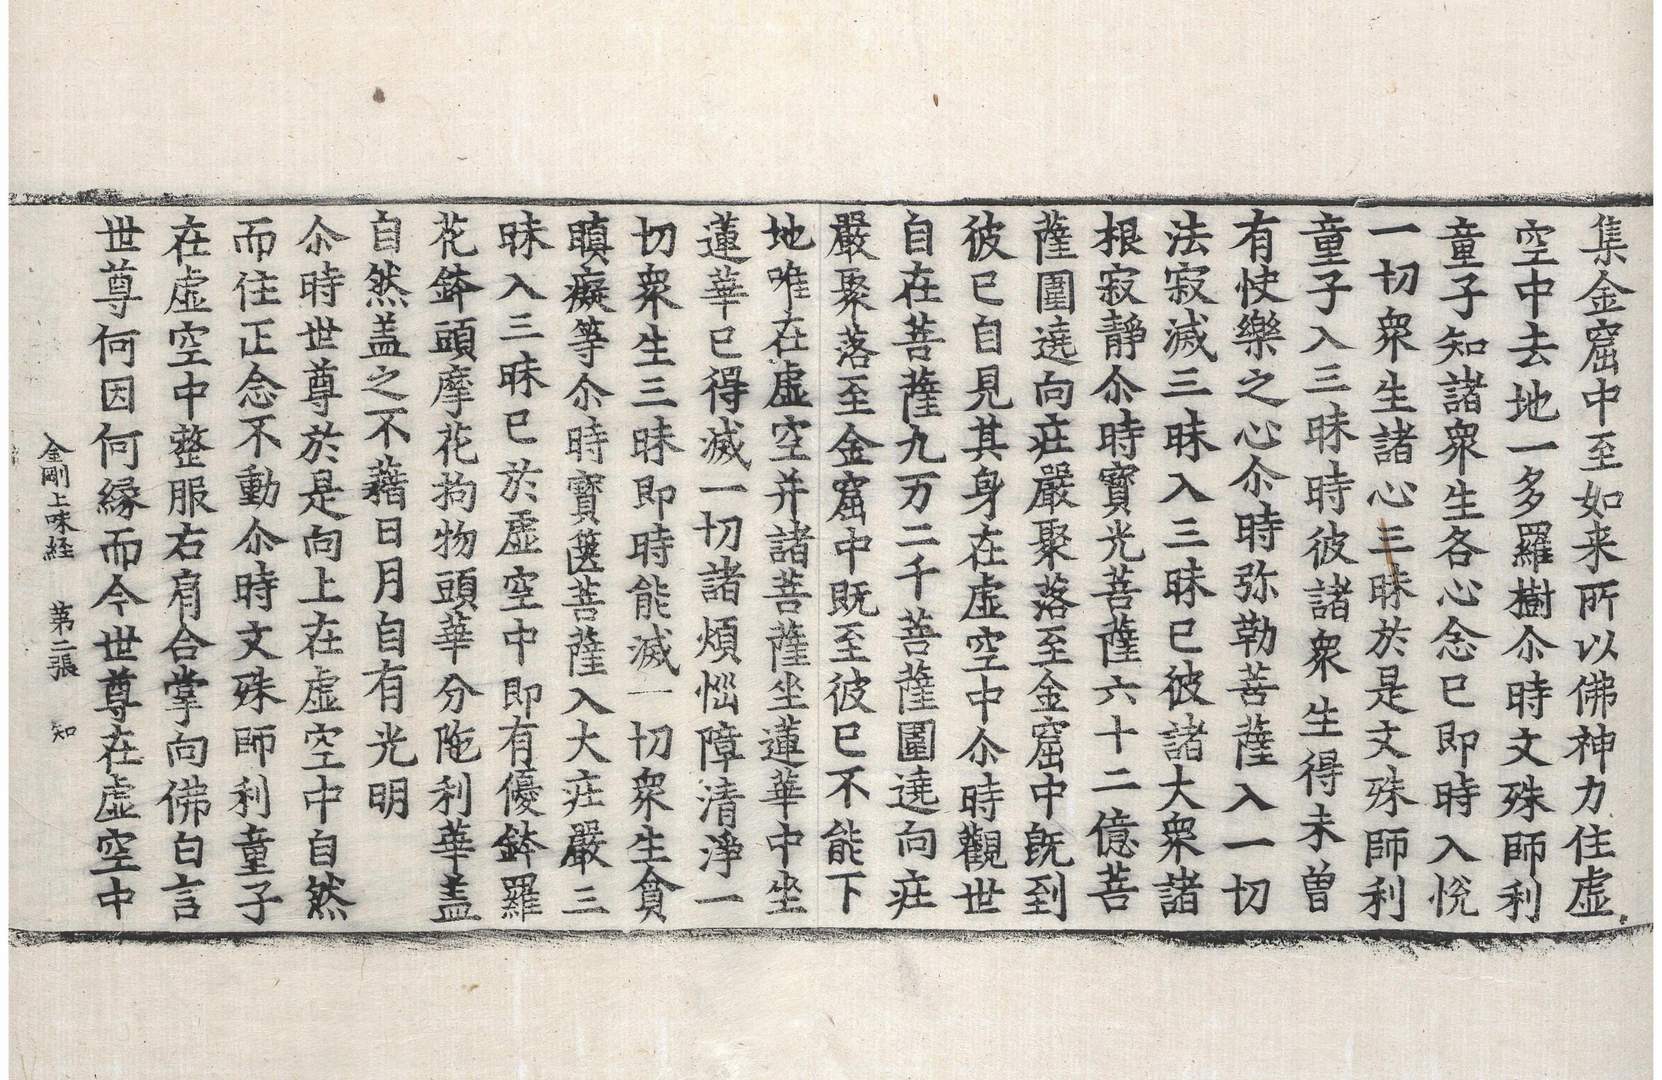 集金窟中至如来所以佛神力住虚
空中去地一多羅樹尒時文殊師利
童子知諸衆生各心念已即時入悅
一切衆生諸心三昧於是文殊師利
童子入三昧時彼諸衆生得未曾
有快樂之心尒時弥勒菩薩入一切
法寂滅三昧入三昧已彼諸大衆諸
根寂靜尒時寶光菩薩六十二億菩
薩圍遶向莊嚴聚落至金窟中旣到
彼已自見其身在虚空中尒時觀世
自在菩薩九万二千菩薩圍遶向莊
嚴聚落至金窟中旣至彼已不能下
地唯在虚空并諸菩薩坐蓮華中坐
蓮華已得滅一切諸煩惱障清淨一
切衆生三昧即時能滅一切衆生貪
瞋癡等尒時寶篋菩薩入大莊嚴三
昧入三昧已於虚空中即有優鉢羅
花鉢頭摩花拘物頭華分陁利華盖
自然盖之不藉日月自有光明
尒時世尊於是向上在虚空中自然
而住正念不動尒時文殊師利童子
在虚空中整服右肩合掌向佛白言
世尊何因何緣而今世尊在虚空中
金剛上味経 第二張 知